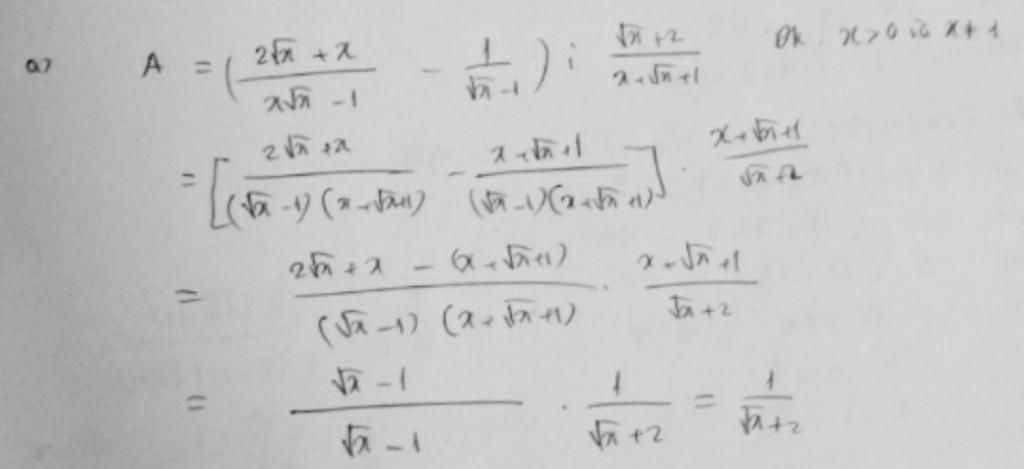 a) A = ( (2√x + x)/(x√x - 1) - 1/(√x - 1) ) : (√x + 2)/(x + √x + 1) Đk : x > 0 và x ≠ 1
= [ (2√x + x)/((√x - 1)(x + √x + 1)) - (x + √x + 1)/((√x - 1)(x + √x + 1)) ] . (x + √x + 1)/(√x + 2)
= (2√x + x - (x + √x + 1))/((√x - 1)(x + √x + 1)) . (x + √x + 1)/(√x + 2)
= (√x - 1)/(√x - 1) . 1/(√x + 2) = 1/(√x + 2)